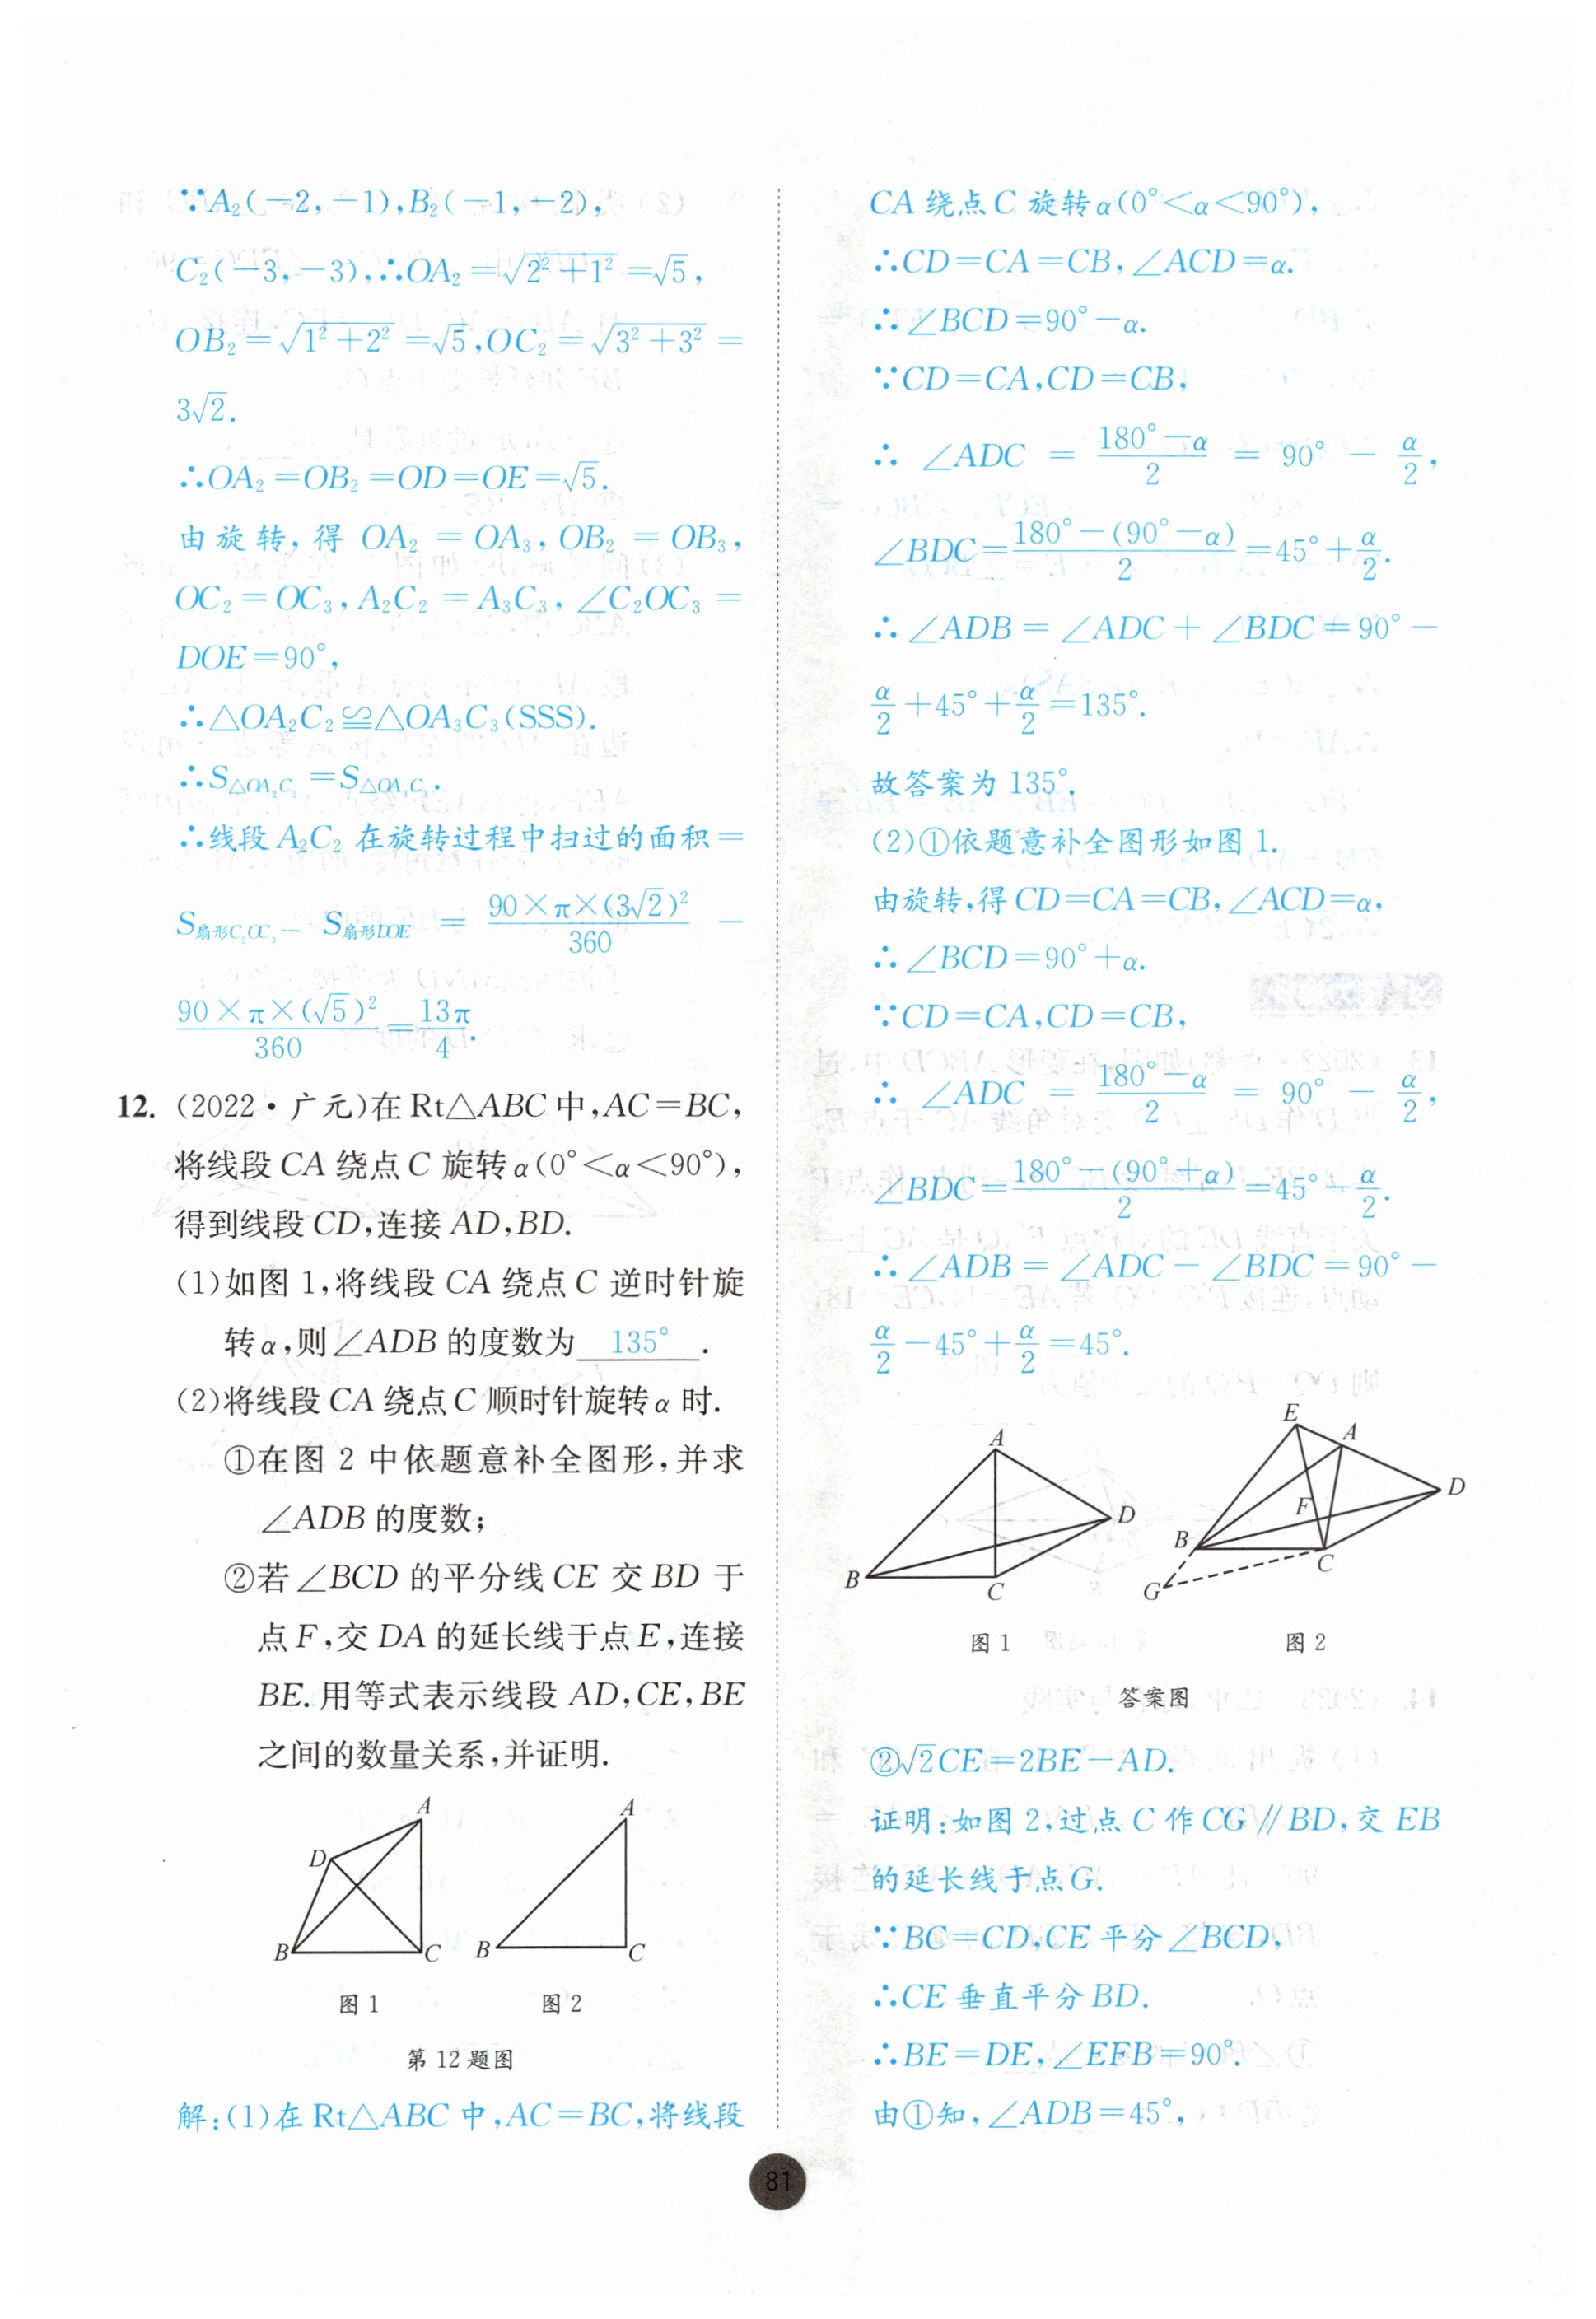 ∵A₂(－2,－1),B₂(－1,－2),
C₂(－3,－3),∴OA₂＝√(2²＋1²)＝√5,
OB₂＝√(1²＋2²)＝√5,OC₂＝√(3²＋3²)＝
3√2.
∴OA₂＝OB₂＝OD＝OE＝√5.
由旋转,得 OA₂＝OA₃,OB₂＝OB₃,
OC₂＝OC₃,A₂C₂＝A₃C₃,∠C₂OC₃＝
DOE＝90°,
∴△OA₂C₂≌△OA₃C₃(SSS).
∴S△OA₂C₂＝S△OA₃C₃.
∴线段A₂C₂在旋转过程中扫过的面积＝
S扇形C₂OC₃－S扇形DOE＝90×π×(3√2)²/360－
90×π×(√5)²/360＝13π/4.
12. (2022·广元)在Rt△ABC中,AC＝BC,
将线段CA绕点C旋转α(0°＜α＜90°),
得到线段CD,连接AD,BD.
(1)如图1,将线段CA绕点C逆时针旋
转α,则∠ADB的度数为 135° .
(2)将线段CA绕点C顺时针旋转α时.
①在图2中依题意补全图形,并求
∠ADB的度数;
②若∠BCD的平分线CE交BD于
点F,交DA的延长线于点E,连接
BE.用等式表示线段AD,CE,BE
之间的数量关系,并证明.
A
D
B
C
A
B
C
图1
图2
第12题图
解:(1)在Rt△ABC中,AC＝BC,将线段
CA绕点C旋转α(0°＜α＜90°),
∴CD＝CA＝CB,∠ACD＝α.
∴∠BCD＝90°－α.
∵CD＝CA,CD＝CB,
∴∠ADC＝(180°－α)/2＝90°－α/2,
∠BDC＝(180°－(90°－α))/2＝45°＋α/2.
∴∠ADB＝∠ADC＋∠BDC＝90°－
α/2＋45°＋α/2＝135°.
故答案为135°.
(2)①依题意补全图形如图1.
由旋转,得CD＝CA＝CB,∠ACD＝α,
∴∠BCD＝90°＋α.
∵CD＝CA,CD＝CB,
∴∠ADC＝(180°－α)/2＝90°－α/2,
∠BDC＝(180°－(90°＋α))/2＝45°－α/2.
∴∠ADB＝∠ADC－∠BDC＝90°－
α/2－45°＋α/2＝45°.
A
D
B
C
E
A
D
F
B
C
G
图1
图2
答案图
②√2CE＝2BE－AD.
证明:如图2,过点C作CG∥BD,交EB
的延长线于点G.
∵BC＝CD,CE平分∠BCD,
∴CE垂直平分BD.
∴BE＝DE,∠EFB＝90°.
由①知,∠ADB＝45°,
81